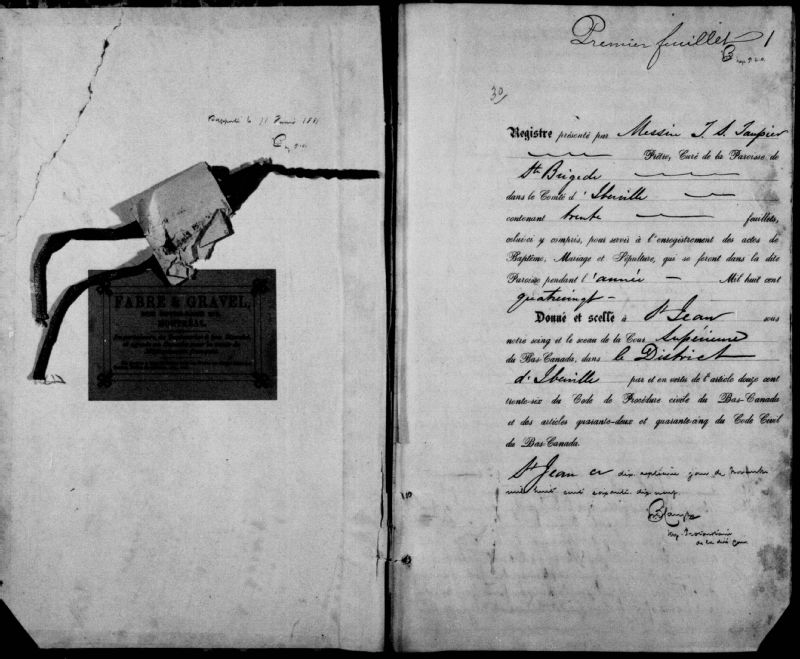 Rapporté le 11 1881
FABRE & GRAVEL,
RUE NOTRE-DAME
MONTRÉAL.
Premier feuillet 1
30
Registre présenté par Messire J. S. Taupier
Prêtre, Curé de la Paroisse de
Ste Brigede
dans le Comté d'Iberville
contenant trente feuillets,
celui-ci y compris, pour servir à l'enregistrement des actes de
Baptême, Mariage et Sépulture, qui se feront dans la dite
Paroisse pendant l'année Mil huit cent
quatrevingt
Donné et scellé à St Jean sous
notre seing et le sceau de la Cour Supérieure
du Bas-Canada, dans le District
d'Iberville par et en vertu de l'article douze cent
trente-six du Code de Procédure civile du Bas-Canada
et des articles quarante-deux et quarante-cinq du Code Civil
du Bas-Canada.
St Jean ce dix septième jour de Novembre
mil huit cent soixante dix neuf
Dep. Protonotaire
de la dite Cour